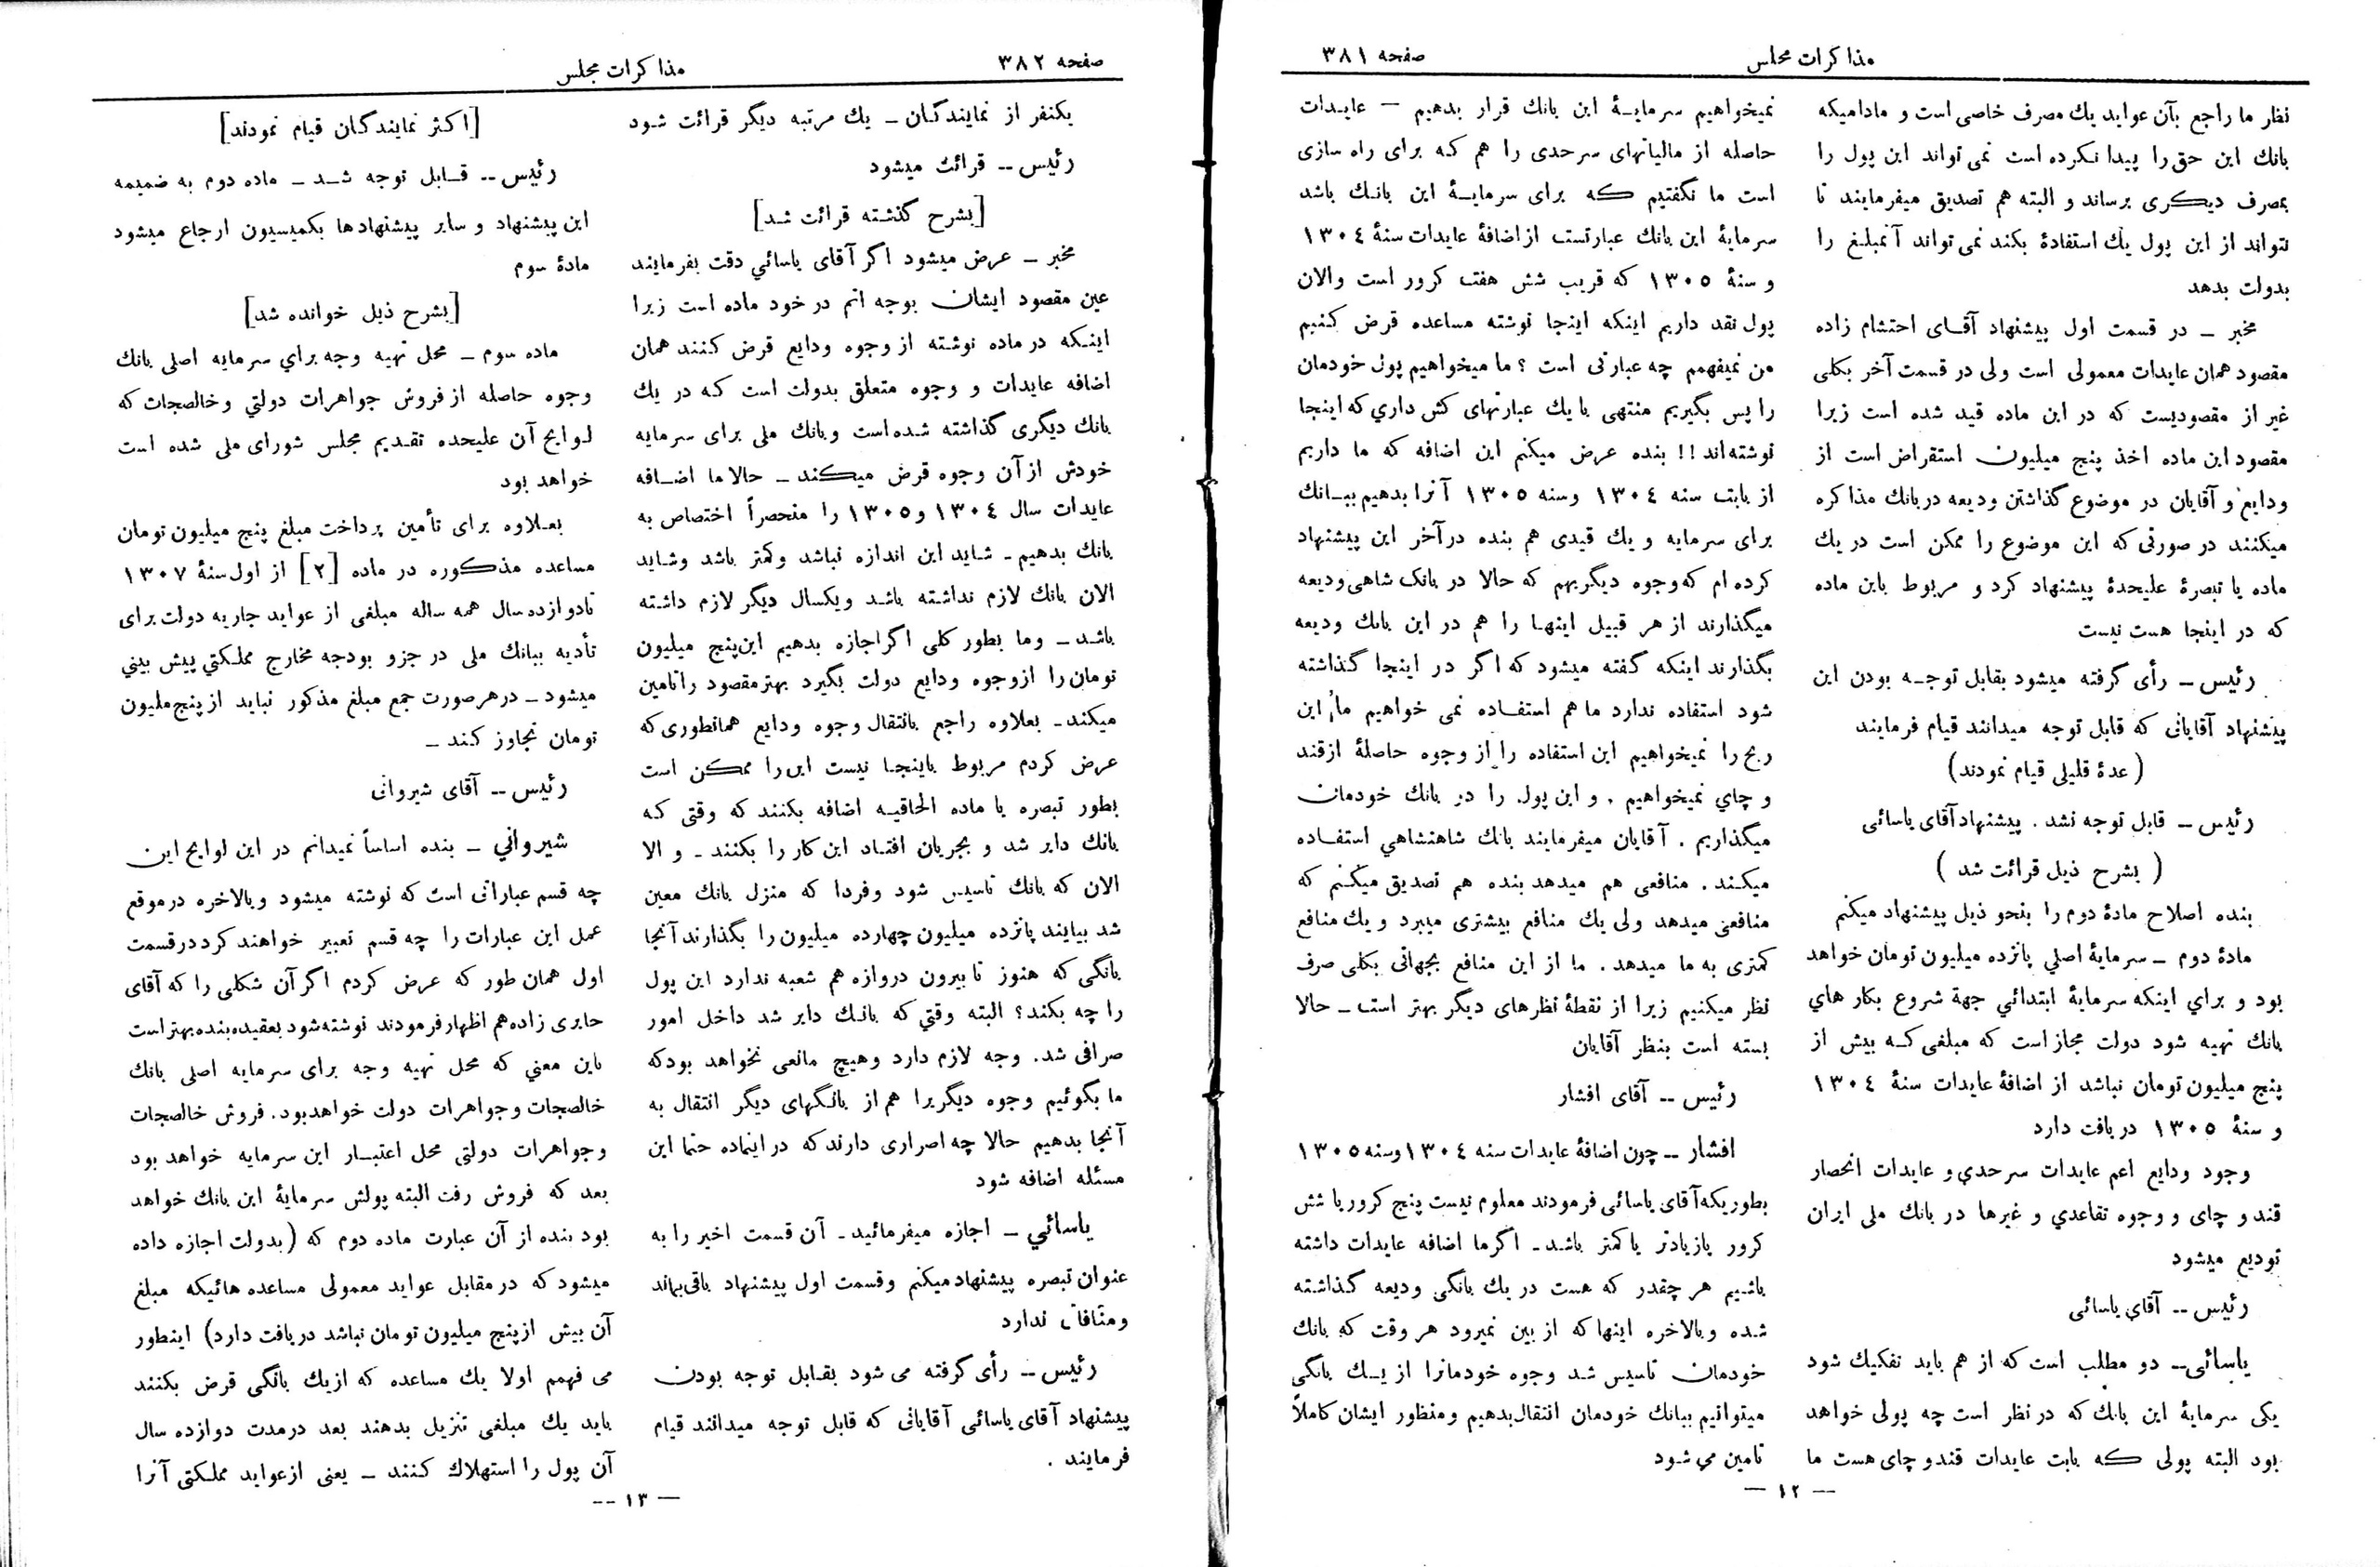 صفحه ۳۸۱
مذاکرات مجلس
نظار ما راجع بآن عواید یك مصرف خاصی است و مادامیکه
بانك این حق را پیدا نکرده است نمی تواند این پول را
بمصرف دیگری برساند و البته هم تصدیق میفرمایند تا
نتواند از این پول یك استفادۀ بکند نمی تواند آنمبلغ را
بدولت بدهد
مخبر ـ در قسمت اول پیشنهاد آقـای احتشام زاده
مقصود همان عایدات معمولی است ولی در قسمت آخر بکلی
غیر از مقصودیست که در این ماده قید شده است زیرا
مقصود این ماده اخذ پنج میلیون استقراض است از
ودایع و آقایان در موضوع گذاشتن ودیعه در بانك مذاکره
میکنند در صورتی که این موضوع را ممکن است در یك
ماده یا تبصرۀ علیحدۀ پیشنهاد کرد و مربوط باین ماده
که در اینجا هست نیست
رئیس ـ رأی گرفته میشود بقابل توجـه بودن این
پیشنهاد آقایانی که قابل توجه میدانند قیام فرمایند
(عدۀ قلیلی قیام نمودند)
رئیس ـ قابل توجه نشد . پیشنهاد آقای یاسائی
( بشرح ذیل قرائت شد )
بنده اصلاح مادۀ دوم را بنحو ذیل پیشنهاد میکنم
مادۀ دوم ـ سرمایۀ اصلي پانزده میلیون تومان خواهد
بود و براي اینکه سرمایۀ ابتدائي جهة شروع بکار هاي
بانك تهیه شود دولت مجاز است که مبلغی کـه بیش از
پنج میلیون تومان نباشد از اضافۀ عایدات سنۀ ۱۳۰٤
و سنۀ ۱۳۰٥ دریافت دارد
وجود ودایع اعم عایدات سرحدي و عایدات انحصار
قند و چای و وجوه تقاعدي و غیرها در بانك ملی ایران
تودیع میشود
رئیس -- آقاي یاسائی
یاسائی-- دو مطلب است که از هم باید تفکیك شود
یکی سرمایۀ این بانك که در نظر است چه پولی خواهد
بود البته پولی که بابت عایدات قند و چای هست ما
نمیخواهیم سرمایـۀ این بانك قرار بدهیم ـ عایـدات
حاصله از مالیاتهای سرحدی را هم کـه برای راه سازی
است ما نگفتیم که برای سرمایـۀ این بانـك باشد
سرمایۀ این بانك عبارتست از اضافۀ عایدات سنۀ ۱۳۰٤
و سنۀ ۱۳۰٥ که قریب شش هفت کرور است والان
پول نقد داریم اینکه اینجا نوشته مساعده قرض کنیم
من نمیفهمم چه عبارتی است ؟ ما میخواهیم پول خودمان
را پس بگیریم منتهی با یك عبارتهای کش داري که اینجا
نوشته اند !! بنده عرض میکنم این اضافه که ما داریم
از بابت سنه ۱۳۰٤ وسنه ۱۳۰٥ آنرا بدهیم ببـانك
برای سرمایه و یك قیدی هم بنده در آخر این پیشنهاد
کرده ام که وجوه دیگریهم که حالا در بانک شاهی ودیعه
میگذارند از هر قبیل اینهـا را هم در این بانك ودیعه
بگذارند اینکه گفته میشود که اگر در اینجا گذاشته
شود استفاده ندارد ما هم استفـاده نمی خواهیم ما این
ربح را نمیخواهیم این استفاده را از وجوه حاصلۀ ازقند
و چاي نمیخواهیم . و این پول را در بانك خودمان
میگذاریم . آقایان میفرمایند بانك شاهنشاهي استفـاده
میکـند . منافعی هم میدهد بنده هم تصدیق میکنـم که
منافعی میدهد ولی یك منافع بیشتری میبرد و یك منافع
کمتری به ما میدهد . ما از این منافع بجهاتی بکلی صرف
نظر میکنیم زیرا از نقطۀ نظرهای دیگر بهتر است ـ حالا
بسته است بنظر آقایان
رئیس -- آقای افشار
افشار -- چون اضافۀ عایدات سنه ۱۳۰٤ وسنه ۱۳۰٥
بطوریکه آقای یاسائی فرمودند معلوم نیست پنج کرور یا شش
کرور یازیادتر یا کمتر باشـد ـ اگر ما اضافه عایدات داشته
باشیم هر چقدر که هست در یك بانگی ودیعه گـذاشته
شده وبالاخره اینها که از بین نمیرود هر وقت که بانك
خودمان تاسیس شـد وجوه خودمانرا از یـك بانگی
میتوانیم ببانك خودمان انتقال بدهیم ومنظور ایشان کاملاً
تامین مي شود
— ۱۲ —
صفحه ۳۸۲
مذاکرات مجلس
یکنفر از نمایندگـان ـ یك مرتبه دیگر قرائت شود
رئیس -- قرائت میشود
[بشرح گذشته قرائت شـد]
مخبر ـ عرض میشود اگر آقای یاسائي دقت بفرمایند
عین مقصود ایشان بوجه اتم در خود ماده است زیرا
اینـکه در ماده نوشته از وجوه ودایع قرض کـنند همان
اضافه عایدات و وجوه متعلق بدولت است کـه در یك
بانك دیگری گذاشته شده است وبانك ملی برای سرمایه
خودش از آن وجوه قرض میکند ـ حالا ما اضـافه
عایدات سال ۱۳۰٤ و۱۳۰٥ را منحصراً اختصاص به
بانك بدهیم ـ شاید این اندازه نباشد وکمتر باشد وشاید
الان بانك لازم نداشته باشد ویکسال دیگر لازم داشته
باشـد ـ وما بطور کلی اگر اجازه بدهیم این پنج میلیون
تومان را از وجوه ودایع دولت بگیرد بهتر مقصود را تامین
میکند ـ بعلاوه راجع بانتقال وجوه ودایع همانطوری که
عرض کردم مربوط باینجـا نیست این را ممکن است
بطور تبصره یا ماده الحاقیـه اضافه بکنند که وقتی کـه
بانك دایر شد و بجریان افتـاد این کار را بکنند ـ و الا
الان که بانك تاسیس شود وفردا که منزل بانك معین
شد بیایند پانزده میلیون چهارده میلیون را بگذارند آنجا
بانگی که هنوز تا بیرون دروازه هم شعبه ندارد این پول
را چه بکند؟ البته وقتي که بانـك دایر شد داخل امور
صرافی شد . وجه لازم دارد وهیچ مانعی نخواهد بود که
ما بگوئیم وجوه دیگر برا هم از بانگهای دیگر انتقال به
آنجا بدهیم حالا چه اصراری دارند که در اینماده حتما این
مسئله اضافه شود
یاسائي ـ اجازه میفرمائید ـ آن قسمت اخیر را به
عنوان تبصره پیشنهاد میکنم وقسمت اول پیشنهاد باقی بماند
ومنافاتی ندارد
رئیس -- رأی گرفته می شود بقـابل توجه بودن
پیشنهاد آقای یاسائی آقایانی که قابل توجه میدانند قیام
فرمایند .
[اکثر نمایندگان قیام نمودند]
رئیس -- قـابل توجه شـد ـ ماده دوم به ضمیمه
این پیشنهاد و سایر پیشنهاد ها بکمیسیون ارجاع میشود
مادۀ سوم
[بشرح ذیل خوانده شد]
ماده سوم ـ محل تهیه وجه براي سرمایه اصلی بانك
وجوه حاصله از فروش جواهرات دولتي و خالصجات که
لوایح آن علیحده تقـدیم مجلس شورای ملی شده است
خواهد بود
بعـلاوه برای تأمین پرداخت مبلغ پنج میلیون تومان
مساعده مذکوره در ماده [۲] از اول سنۀ ۱۳۰۷
تادوازده سال همه ساله مبلغی از عواید جاریه دولت برای
تأدیه ببانك ملی در جزو بودجه مخارج مملکتي پیش بیني
میشود ـ درهر صورت جمع مبلغ مذکور نباید از پنج ملیون
تومان تجاوز کند ـ
رئیس -- آقای شیروانی
شیرواني ـ بنده اساساً نمیدانم در این لوایح این
چه قسم عباراتی است که نوشته میشود وبالاخره در موقع
عمل این عبارات را چه قسم تعبیر خواهند کرد در قسمت
اول همان طور که عرض کردم اگر آن شکلی را که آقای
حایری زاده هم اظهار فرمودند نوشته شود بعقیده بنده بهتر است
باین معني که محل تهیه وجه برای سرمایه اصلی بانك
خالصجات وجواهرات دولت خواهد بود . فروش خالصجات
وجواهرات دولتی محل اعتبـار این سرمایه خواهد بود
بعد که فروش رفت البته پولش سرمایۀ این بانك خواهد
بود بنده از آن عبارت ماده دوم که (بدولت اجازه داده
میشود که در مقابل عواید معمولی مساعده هائیکه مبلغ
آن بیش از پنج میلیون تومان نباشد دریافت دارد) اینطور
می فهمم اولا یك مساعده که ازیك بانگی قرض بکنند
باید یك مبلغی تنزیل بدهند بعد درمدت دوازده سال
آن پول را استهلاك کـنند ـ یعنی از عواید مملکتی آنرا
— ۱۳ --